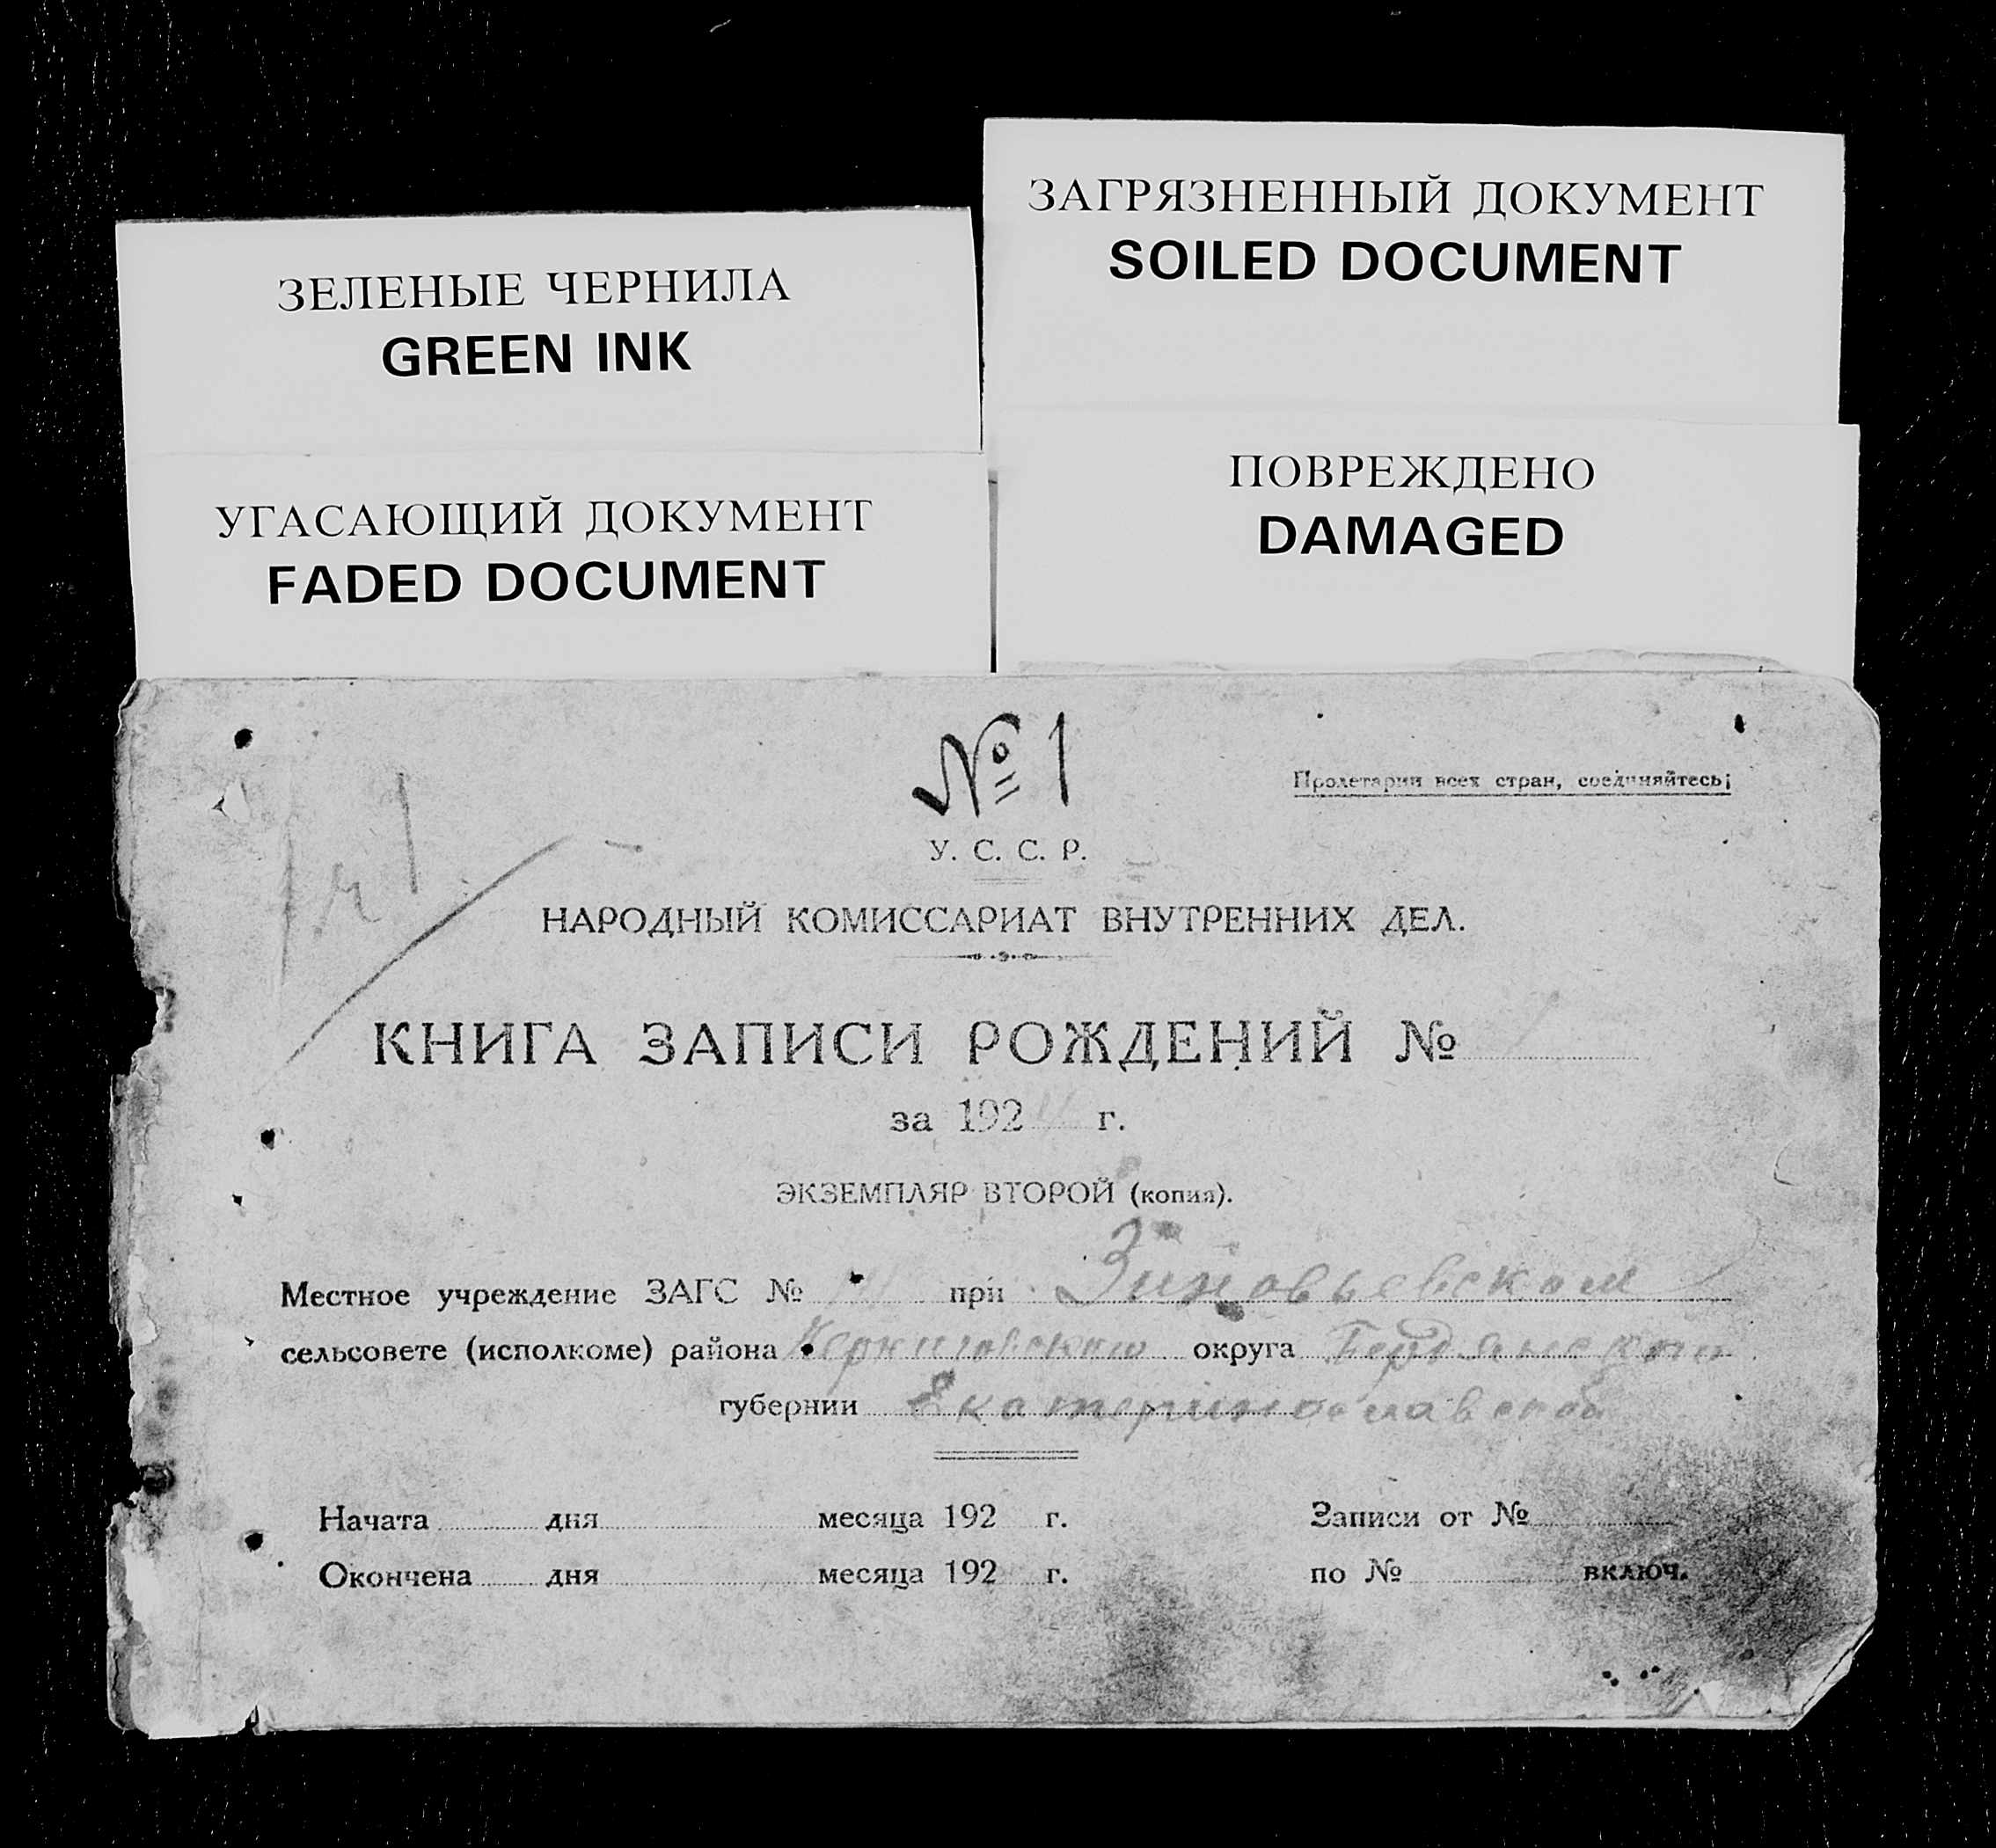 ЗЕЛЕНЫЕ ЧЕРНИЛА
GREEN INK
УГАСАЮЩИЙ ДОКУМЕНТ
FADED DOCUMENT
ЗАГРЯЗНЕННЫЙ ДОКУМЕНТ
SOILED DOCUMENT
ПОВРЕЖДЕНО
DAMAGED
№ 1
Пролетарии всех стран, соединяйтесь¡
У. С. С. Р.
НАРОДНЫЙ КОМИССАРИАТ ВНУТРЕННИХ ДЕЛ.
КНИГА ЗАПИСИ РОЖДЕНИЙ №
за 192 г.
ЭКЗЕМПЛЯР ВТОРОЙ (копия).
Местное учреждение ЗАГС № при Зиновьевском
сельсовете (исполкоме) района округа Бердянского
губернии Екатеринославской
Начата дня месяца 192 г. Записи от №
Окончена дня месяца 192 г. по № включ.